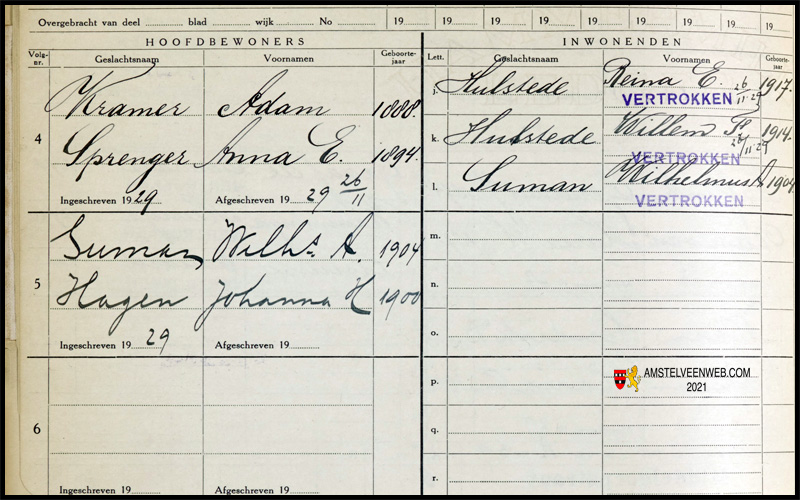 Overgebracht van deel blad wijk No 19 19 19 19 19 19 19 19
HOOFDBEWONERS
Volg-nr. Geslachtsnaam Voornamen Geboorte-jaar
4
Kramer Adam 1888.
Sprenger Anna E. 1894.
Ingeschreven 1929 Afgeschreven 19 29 26/11
5
Suman Wilhs A. 1904
Hagen Johanna H 1900
Ingeschreven 19 29 Afgeschreven 19
6
Ingeschreven 19 Afgeschreven 19
INWONENDEN
Lett. Geslachtsnaam Voornamen Geboorte-jaar
j. Hulstede Reina E. 26/11-29 1917.
VERTROKKEN
k. Hulstede Willem 1914.
26/11-29
VERTROKKEN
l. Suman Wilhelmus A 1904
VERTROKKEN
m.
n.
o.
p.
q.
r.
AMSTELVEENWEB.COM
2021